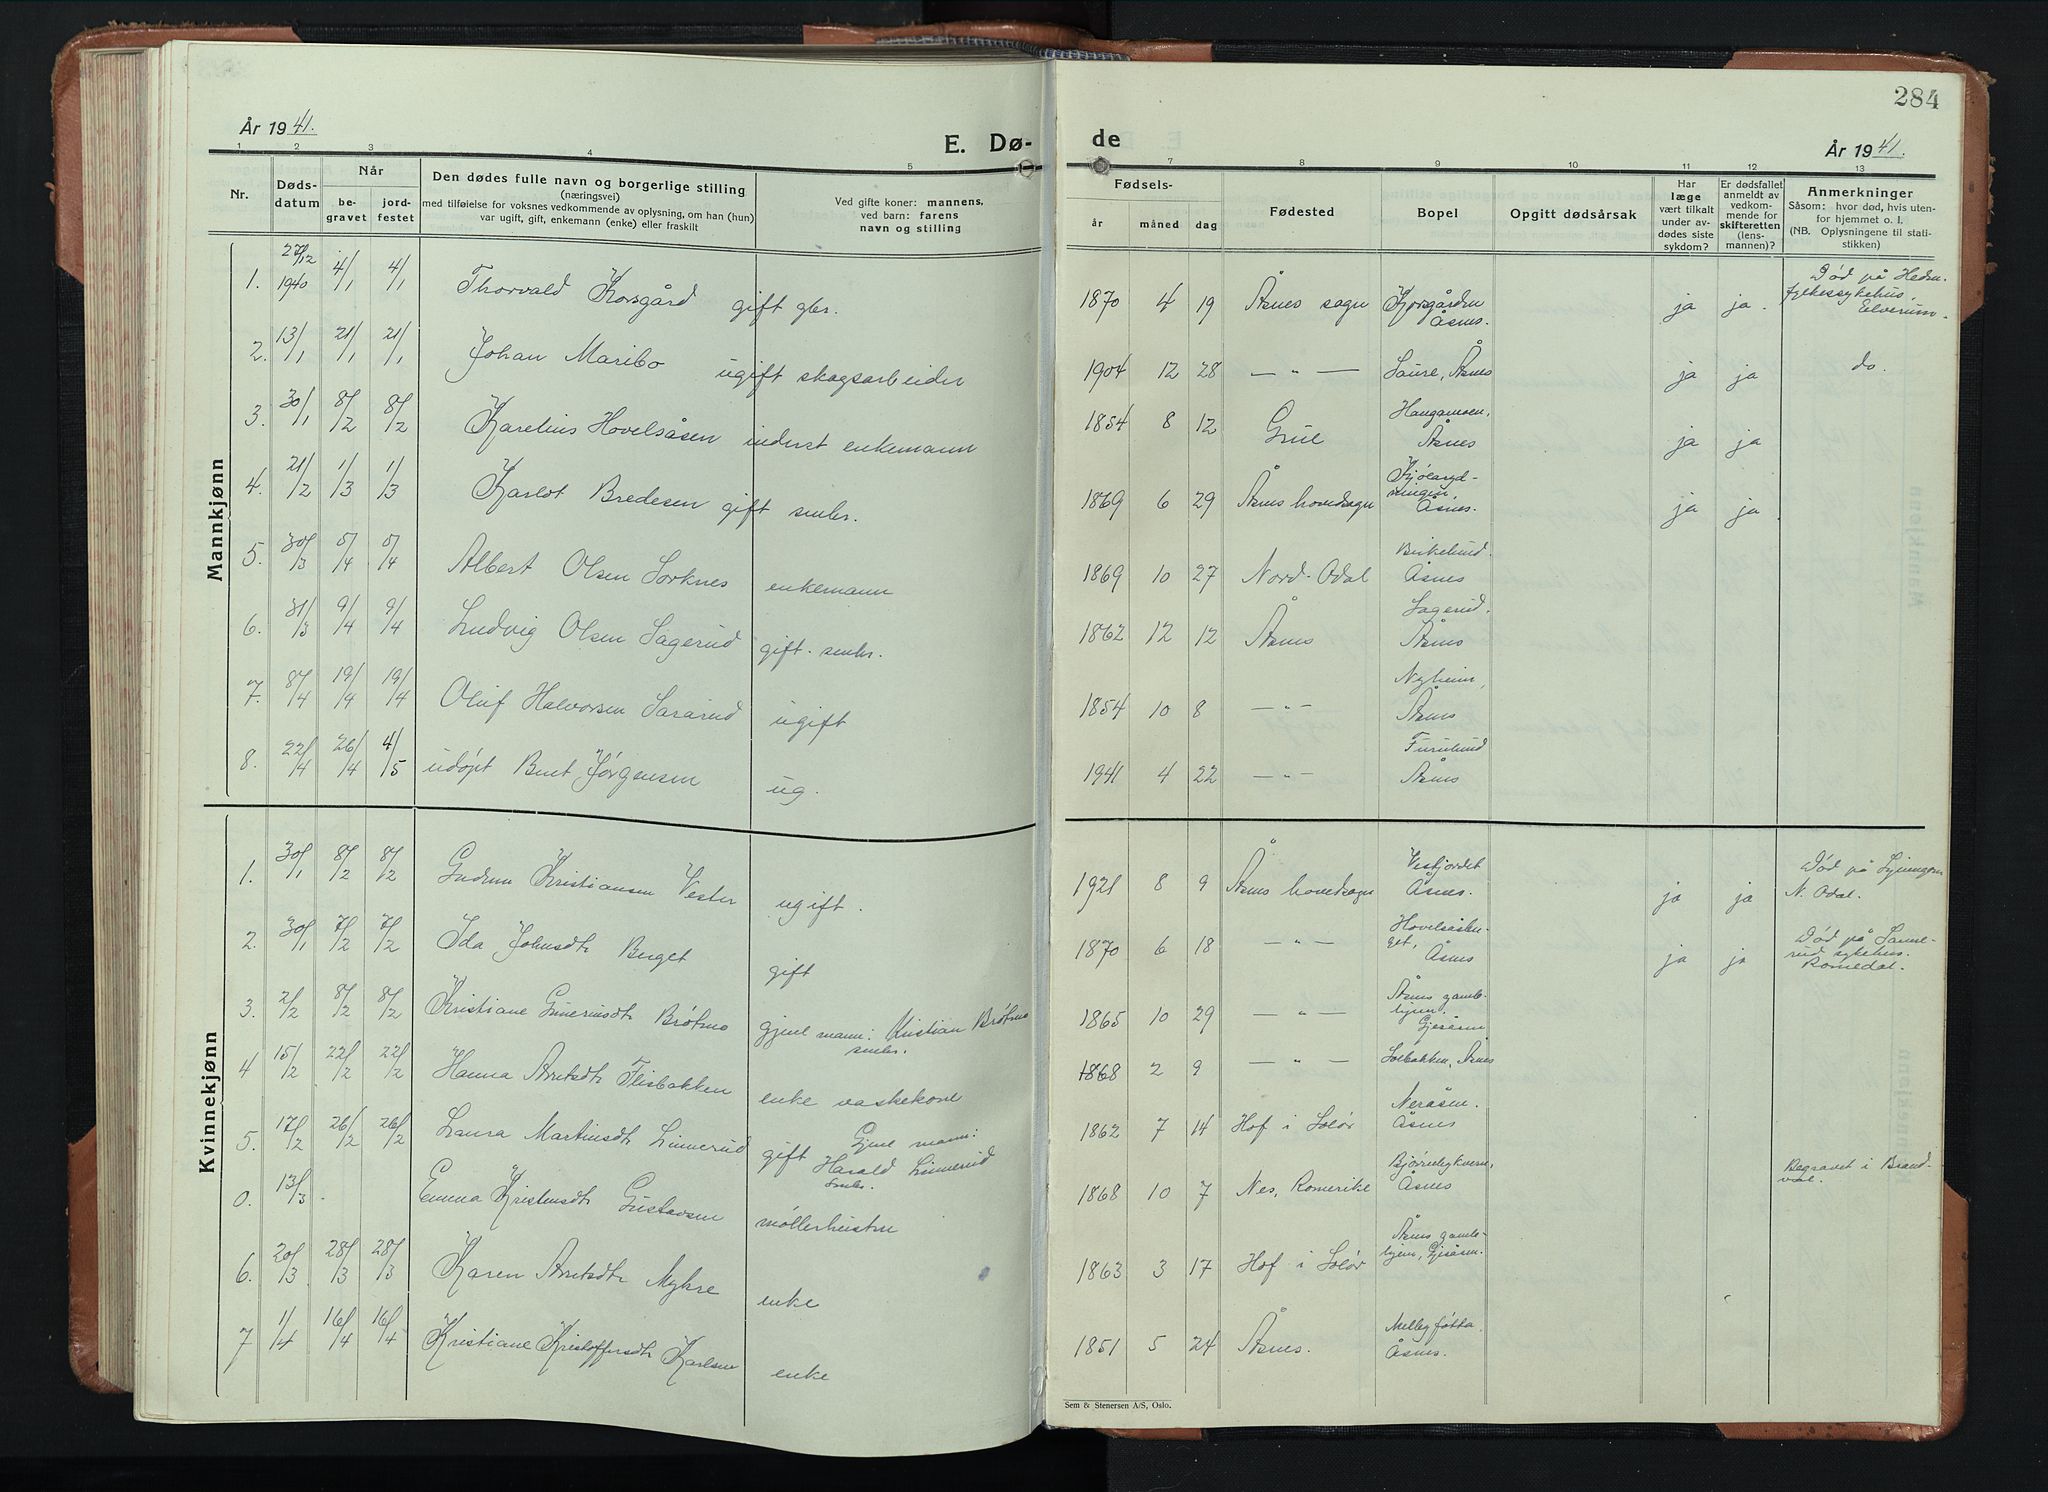 284
År 1941.
E. Dø-
de
År 1941.
1 2 3 4 5 7 8 9 10 11 12 13
Nr.
Døds-
datum
Når
be-
gravet
jord-
festet
Den dødes fulle navn og borgerlige stilling
(næringsvei)
med tilføielse for voksnes vedkommende av oplysning, om han (hun)
var ugift, gift, enkemann (enke) eller fraskilt
Ved gifte koner: mannens,
ved barn: farens
navn og stilling
Fødsels-
år måned dag
Fødested
Bopel
Opgitt dødsårsak
Har
læge
vært tilkalt
under av-
dødes siste
sykdom?
Er dødsfallet
anmeldt av
vedkom-
mende for
skifteretten
(lens-
mannen)?
Anmerkninger
Såsom: hvor død, hvis uten-
for hjemmet o. l.
(NB. Oplysningene til stati-
stikken)
Mannkjønn
1. 27/12 1940 4/1 4/1 Thorvald Korsgård gift gbr. 1870 4 19 Åsnes sogn Kjorsgården Åsnes. ja ja. Død på Hedm. fylkessykehus, Elverum.
2. 13/1 21/1 21/1 Johan Maribo ugift skogsarbeider 1904 12 28 — " — Saure, Åsnes ja ja do.
3. 30/1 8/2 8/2 Karelius Hovelsåsen inderst enkemann 1854 8 12 Grue Haugamoen, Åsnes ja ja
4. 21/2 1/3 1/3 Karlot Bredesen gift smbr. 1869 6 29 Åsnes hovedsogn Kjølaryd-ningen, Åsnes. ja ja.
5. 30/3 5/4 5/4 Albert Olsen Sorknes enkemann 1869 10 27 Nord-Odal Birkelund. Åsnes
6. 31/3 9/4 9/4 Ludvig Olsen Sagerud gift. smbr. 1862 12 12 Åsnes Sagerud. Åsnes
7. 8/4 19/4 19/4 Oluf Halvorsen Sararud ugift 1854 10 8 — " — Nyheim, Åsnes
8. 22/4 26/4 4/5 udøpt Bent Jørgensen ug. 1941 4 22 — " — Furulund Åsnes
Kvinnekjønn
1. 30/1 8/2 8/2 Gudrun Kristiansen Vester ugift. 1921 8 9 Åsnes hovedsogn Vesfjordet Åsnes. ja ja Død på N. Odal.
2. 30/1 7/2 7/2 Ida Johnsdtr Berget gift 1870 6 18 — " — Hovelsåsber-get, Åsnes ja ja Død på Sanne-rud sykehus. Romedal.
3. 2/2 8/2 8/2 Kristiane Guneriusdtr Bråtmo gjenl mann: Kristian Bråtmo smbr. 1865 10 29 — " — Åsnes gamle-hjem. Gjesåsen
4 15/2 22/2 22/2 Hanna Arntsdtr Flisbakken enke vaskekone 1868 2 9 — " — Solbakken, Åsnes
5. 17/2 26/2 26/2 Laura Martinsdtr Linnerud gift Gjenl mann: Harald Linnerud smbr. 1862 7 14 Hof i Solør Neråsen. Åsnes
0. 13/3 Emma Kristensdtr Gustavsen møllerhustru 1868 10 7 Nes, Romerike Bjørnebykvern, Åsnes Begravet i Brand-val.
6. 20/3 28/3 28/3 Karen Arntsdtr Myhre enke 1863 3 17 Hof i Solør Åsnes gamle-hjem, Gjesåsen.
7 1/4 16/4 16/4 Kristiane Kristoffersdtr Karlsen enke 1851 5 24 Åsnes. Mellegføtta. Åsnes.
Sem & Stenersen A/S, Oslo.